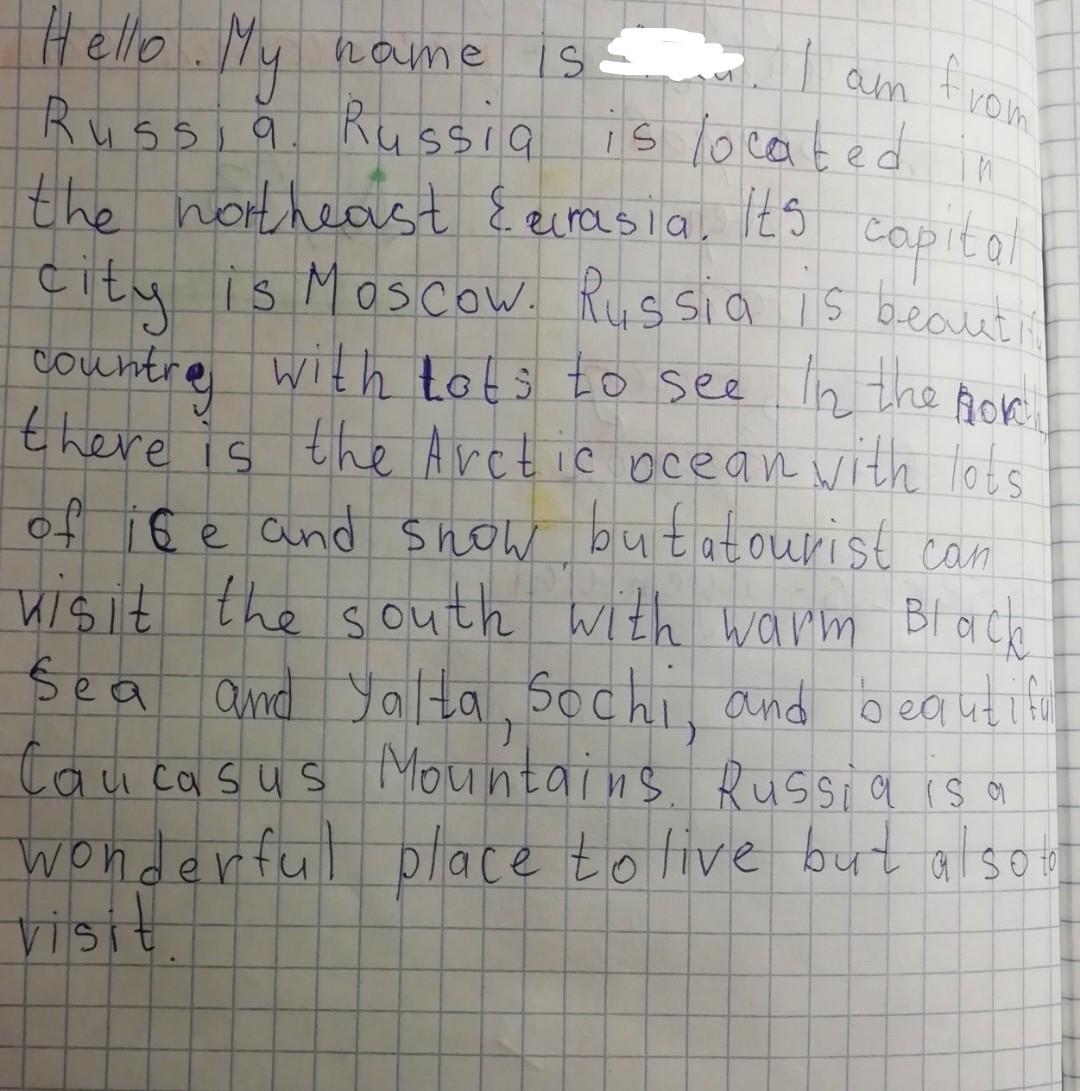 Hello. My name is . I am from
Russia. Russia is located in
the northeast Eurasia. Its capital
city is Moscow. Russia is beautiful
country with lots to see. In the north
there is the Arctic ocean with lots
of ice and snow, but a tourist can
visit the south with warm Black
Sea and Yalta, Sochi, and beautiful
Caucasus Mountains. Russia is a
wonderful place to live but also to
visit.